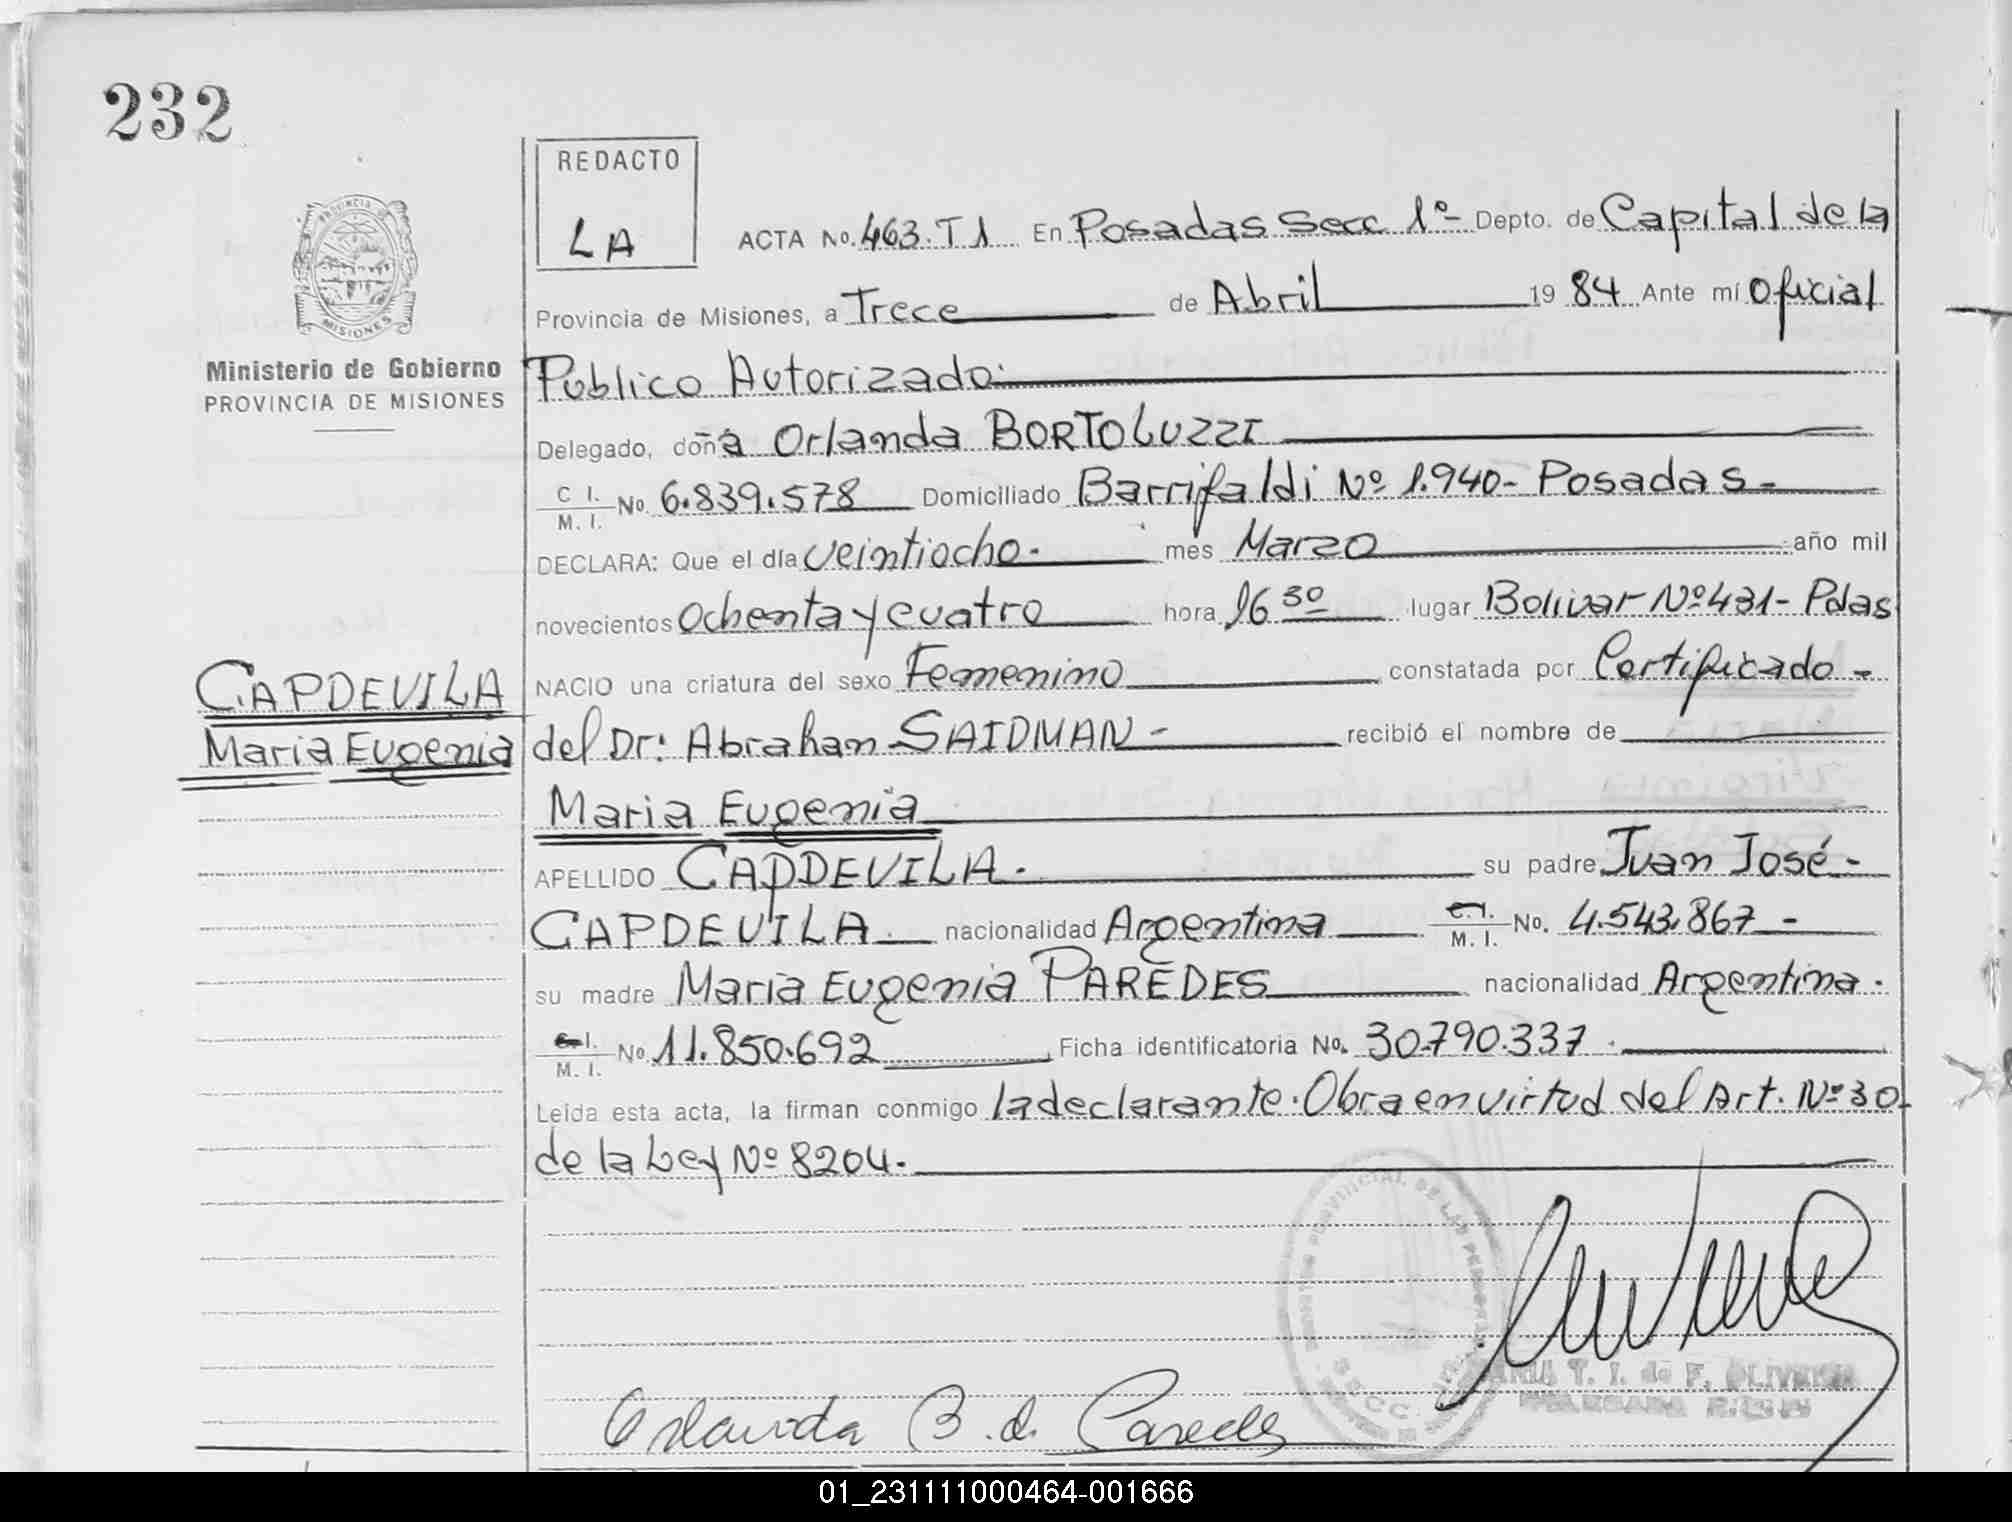 232
REDACTO
LA
ACTA No. 463. T 1 En Posadas Secc 1º- Depto. de Capital de la
Provincia de Misiones, a Trece de Abril 19 84 Ante mí Oficial
Público Autorizado.
Delegado, doña Orlanda BORTOLUZZI
C I. / M. I. No. 6.839.578 Domiciliado Barrifaldi Nº 1.940- Posadas-
DECLARA: Que el día veintiocho- mes Marzo año mil
novecientos Ochenta y cuatro hora 16 30 lugar Bolivar Nº 431- Pdas
NACIO una criatura del sexo Femenino constatada por Certificado -
del Dr: Abraham SAIDMAN - recibió el nombre de
Maria Eugenia
APELLIDO CAPDEVILA. su padre Juan José -
CAPDEVILA nacionalidad Argentina C.I. / M. I. No. 4.543.867 -
su madre Maria Eugenia PAREDES nacionalidad Argentina.
C.I. / M. I. No. 11.850.692 Ficha identificatoria No. 30.790.337.
Leída esta acta, la firman conmigo la declarante. Obra en virtud del Art. Nº 30
de la Ley Nº 8204.
PROVINCIA DE
MISIONES
Ministerio de Gobierno
PROVINCIA DE MISIONES
CAPDEVILA
Maria Eugenia
PROVINCIAL DE LAS PERSONAS
SECC.
Orlanda B. d. Paredes
MARIA T. I. de F. OLIVEIRA
01_231111000464-001666